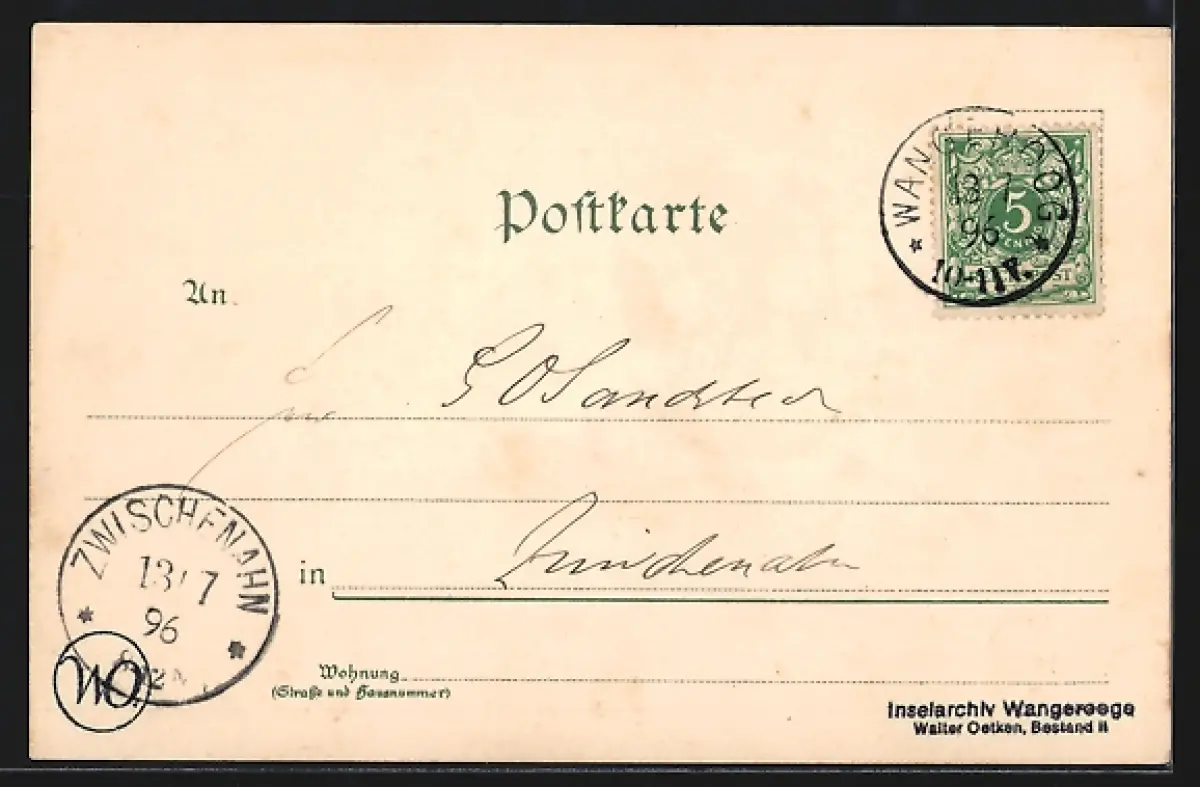 Postkarte
WANGEROOG
13 7
96
10-11V.
5
PFENNIG
An
G O Sandstede
Zwischenahn
in
ZWISCHENAHN
13/7
96
WO.
Wohnung
(Straße und Hausnummer)
Inselarchiv Wangerooge
Walter Oetken, Bestand II